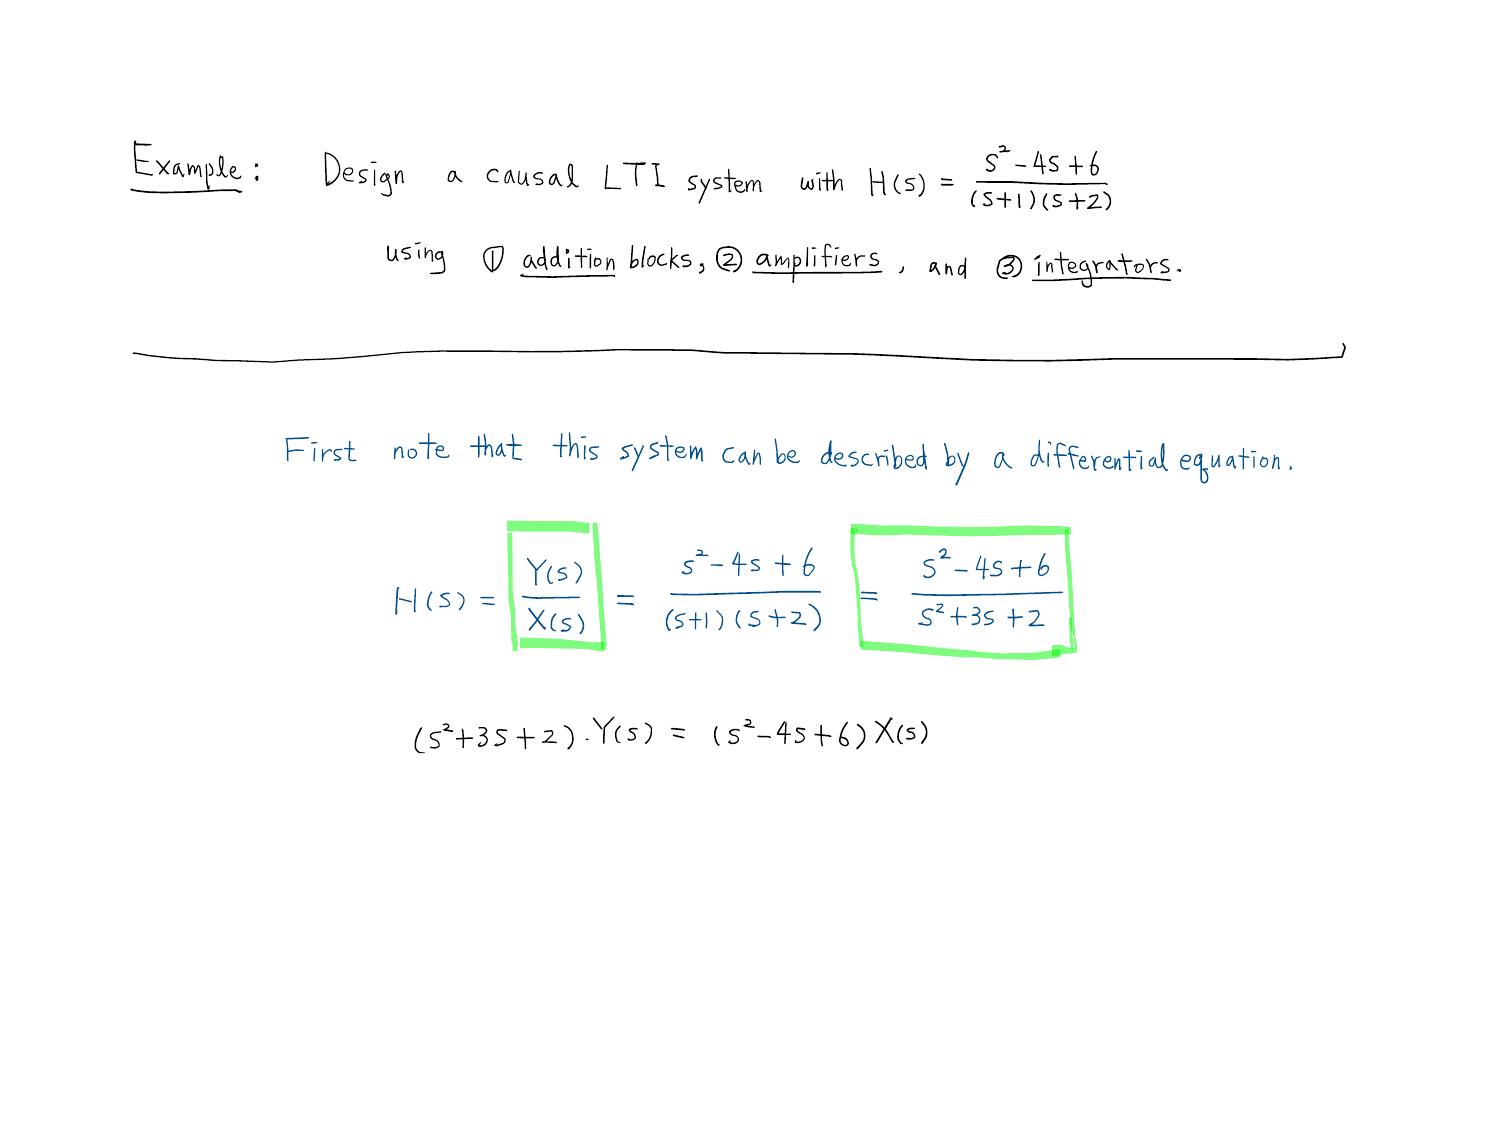 Example: Design a causal LTI system with H(s) = (s² - 4s + 6) / ((s+1)(s+2))
using ① addition blocks, ② amplifiers, and ③ integrators.
First note that this system can be described by a differential equation.
H(s) = Y(s)/X(s) = (s² - 4s + 6) / ((s+1)(s+2)) = (s² - 4s + 6) / (s² + 3s + 2)
(s² + 3s + 2) · Y(s) = (s² - 4s + 6) X(s)